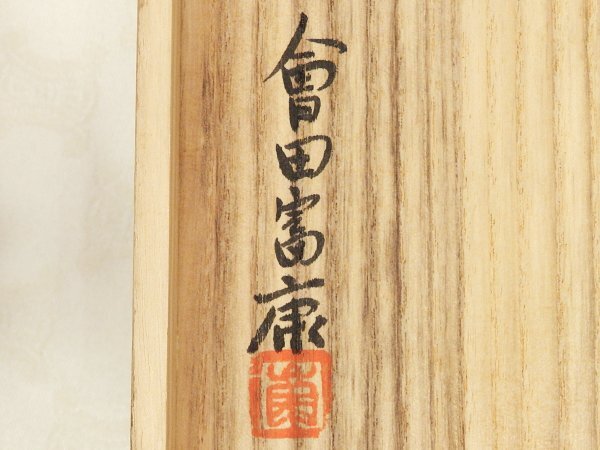 會田富康